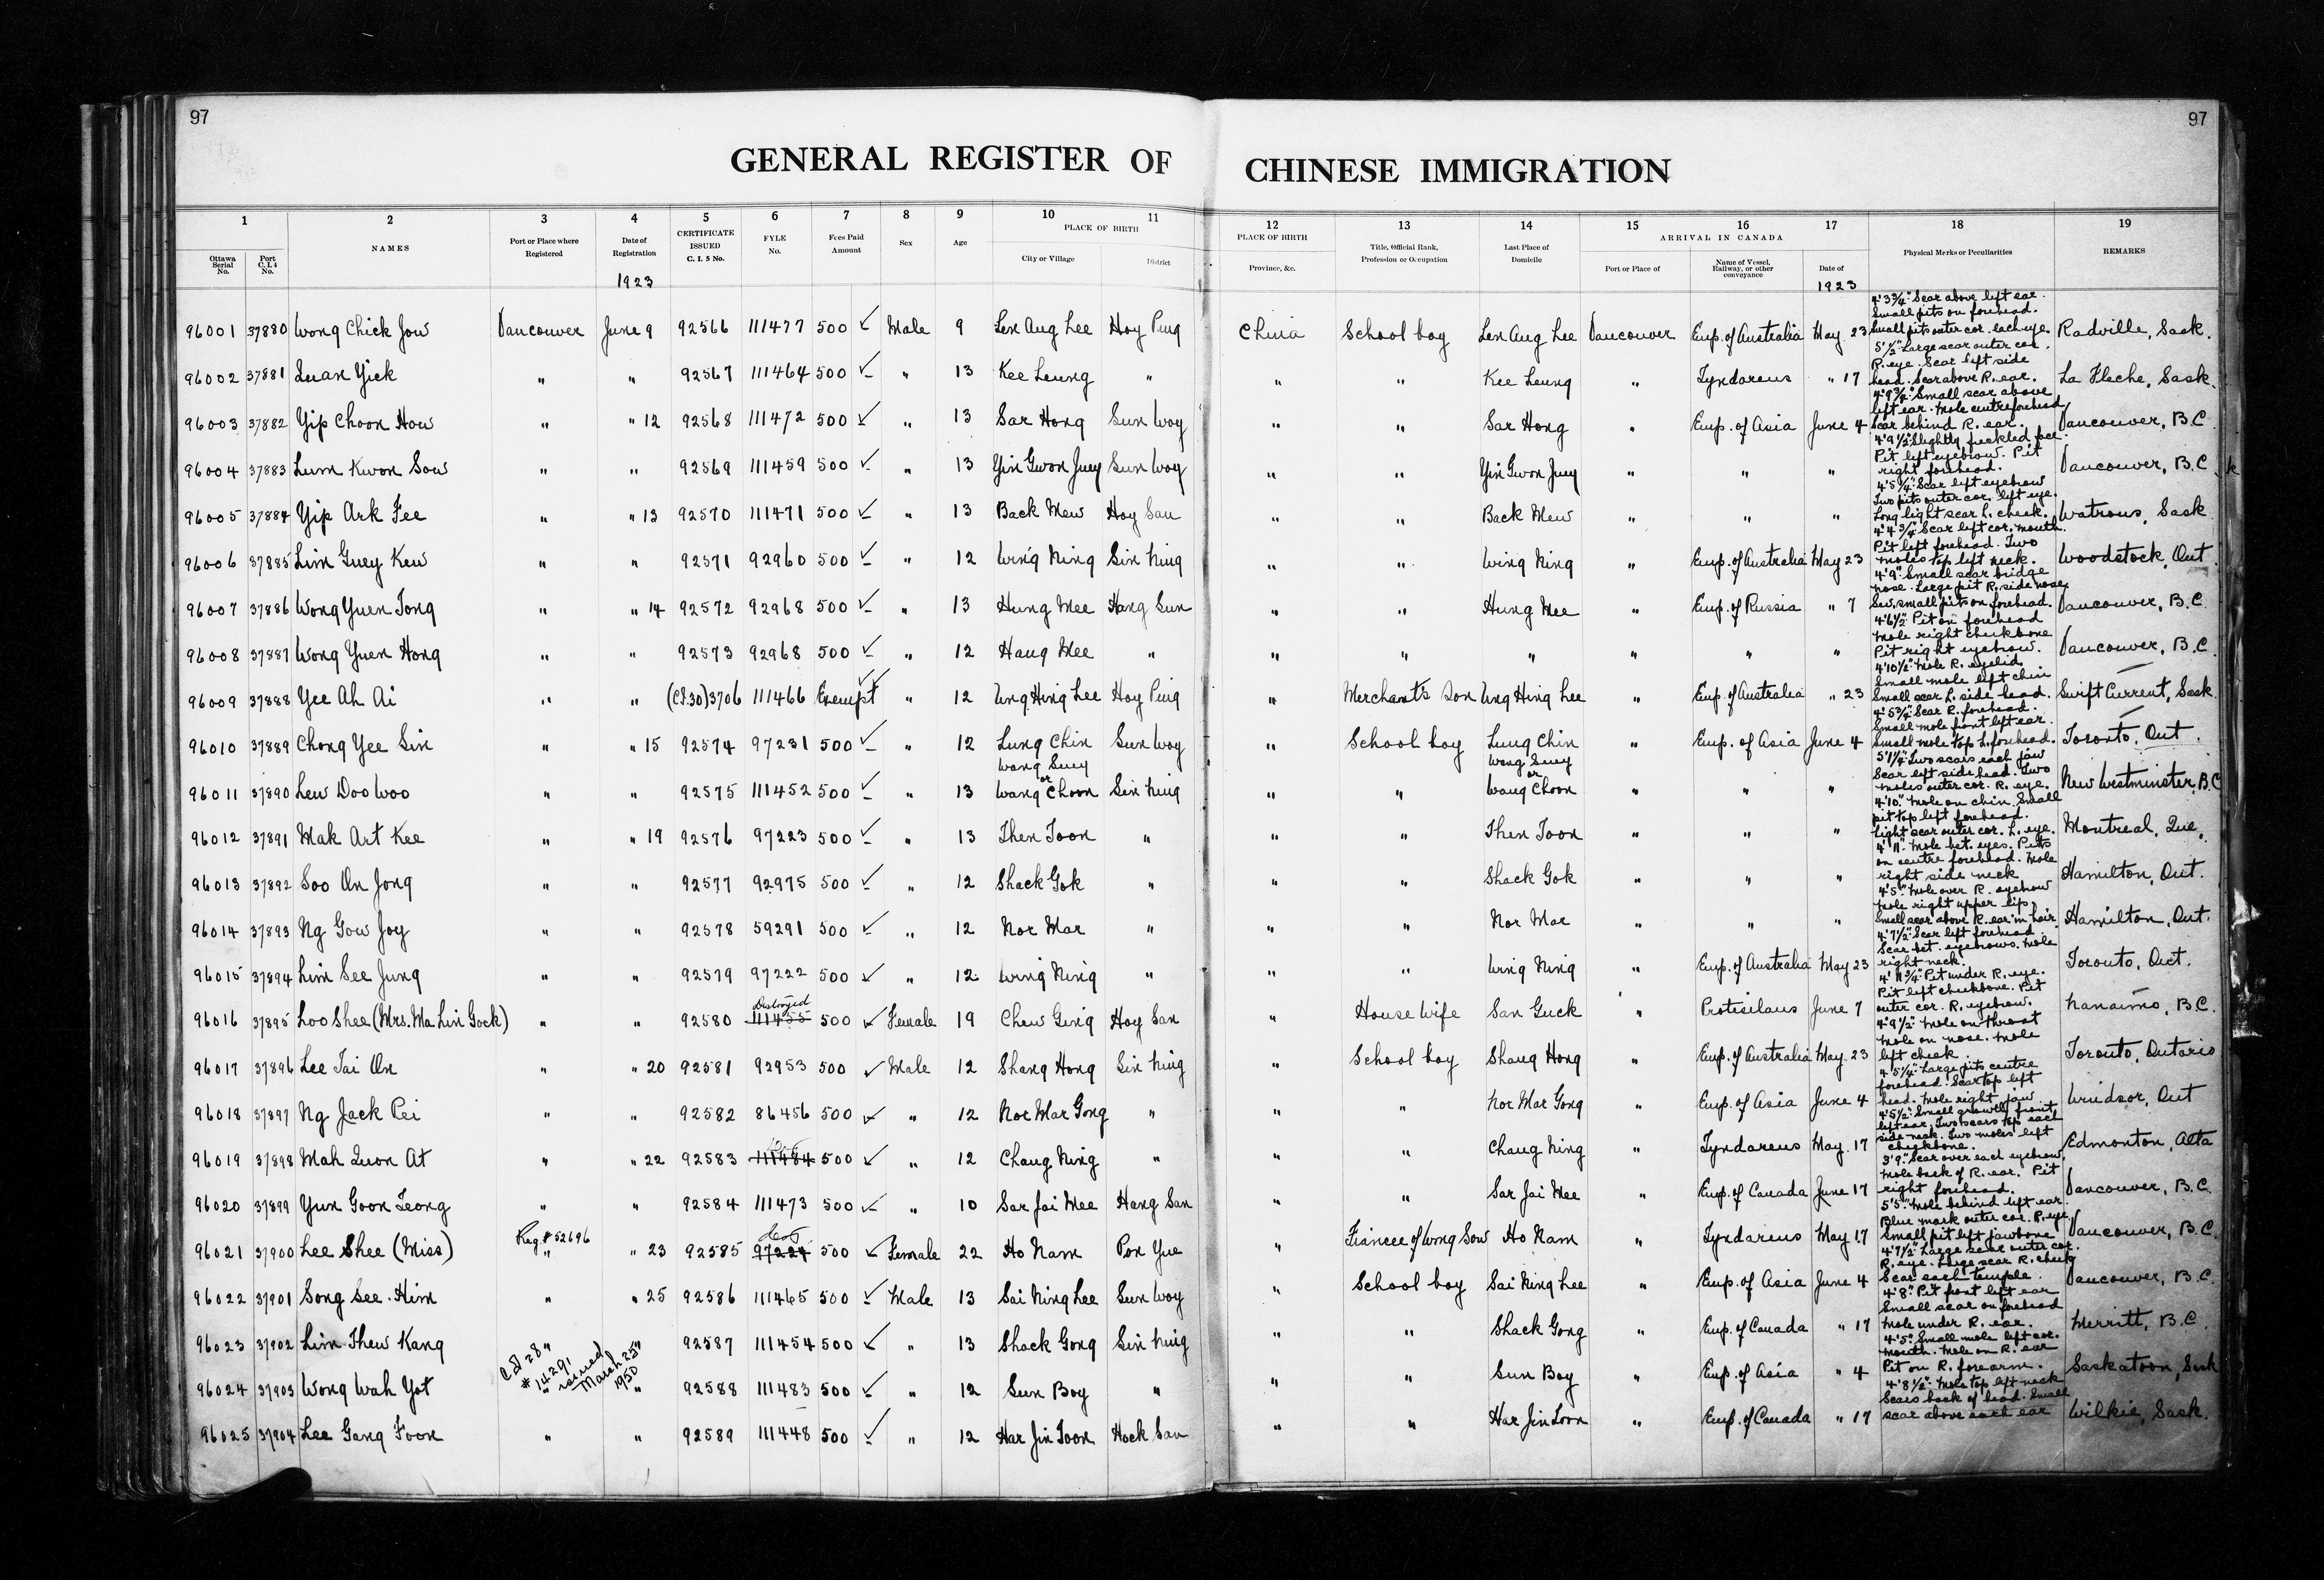 97
97
GENERAL REGISTER OF CHINESE IMMIGRATION
1 2 3 4 5 6 7 8 9 10 11 12 13 14 15 16 17 18 19
PLACE OF BIRTH PLACE OF BIRTH ARRIVAL IN CANADA
Ottawa Serial No. Port C.I.4 No. NAMES Port or Place where Registered Date of Registration CERTIFICATE ISSUED C. I. 5 No. FYLE No. Fees Paid Amount Sex Age City or Village District Province, &c. Title, Official Rank, Profession or Occupation Last Place of Domicile Port or Place of Name of Vessel, Railway, or other conveyance Date of Physical Marks or Peculiarities REMARKS
1923 1923
96001 37880 Wong Chick Jow Vancouver June 9 92566 111477 500 ✓ Male 9 Len Aug Lee Hoy Ping China School boy Len Aug Lee Vancouver Emp. of Australia May 23 4'3¾" Scar above left ear. Small pits on forehead. Small pits outer cor. each eye. Radville, Sask.
96002 37881 Luan Yick " " 92567 111464 500 ✓ " 13 Kee Leung " " " Kee Leung " Tyndareus " 17 5'½" Large scar outer cor. R. eye. Scar left side head. Scar above R. ear. La Fleche, Sask.
96003 37882 Yip Choon How " " 12 92568 111472 500 ✓ " 13 Sar Hong Sun Woy " " Sar Hong " Emp. of Asia June 4 4'9¾" Small scar above left ear. Mole centre forehead. Scar behind R. ear. Vancouver, B.C.
96004 37883 Lum Kwon Sow " " 92569 111459 500 ✓ " 13 Yin Gwon Juey Sun Woy " " Yin Gwon Juey " " " 4'9½" Slightly freckled face. Pit left eyebrow. Pit right forehead. Vancouver, B.C.
96005 37884 Yip Ark Fee " " 13 92570 111471 500 ✓ " 13 Back Mew Hoy San " " Back Mew " " " 4'5¼" Scar left eyebrow Two pits outer cor. left eye. Long light scar L. cheek. Watrous, Sask
96006 37885 Lim Guey Kew " " 92571 92960 500 ✓ " 12 Wing Ning Sin Ning " " Wing Ning " Emp. of Australia May 23 4'4¾" Scar left cor. mouth. Pit left forehead. Two moles top left neck. Woodstock, Ont.
96007 37886 Wong Yuen Tong " " 14 92572 92968 500 ✓ " 13 Hung Mee Hang Sun " " Hung Mee " Emp. of Russia " 7 4'9" Small scar bridge nose. Large pit R. side nose. Sev. small pits on forehead. Vancouver, B.C.
96008 37887 Wong Yuen Hong " " 92573 92968 500 ✓ " 12 Hang Mee " " " " " " " 4'6½" Pit on forehead Mole right cheekbone Pit right eyebrow. Vancouver, B.C.
96009 37888 Yee Ah Ai " " (C.I.30)3706 111466 Exempt ✓ " 12 Ung Hing Lee Hoy Ping " Merchant's Son Ung Hing Lee " Emp. of Australia " 23 4'10½" Mole R. eyelid Small mole left chin Small scar L. side head. Swift Current, Sask.
96010 37889 Chong Yee Sin " " 15 92574 97231 500 ✓ " 12 Lung Chin Sun Woy " School boy Lung Chin " Emp. of Asia June 4 4'5¾" Scar R. forehead. Small mole front left ear. Small mole top L. forehead. Toronto, Ont.
96011 37890 Lew Doo Woo " " 92575 111452 500 ✓ " 13 Wong Suey or Wang Choon Sin Ning " " Wong Suey or Wang Choon " " " 5'1¼" Two scars each jaw Scar left side head. Two moles outer cor. R. eye. New Westminster, B.C.
96012 37891 Mak Art Kee " " 19 92576 97223 500 ✓ " 13 Then Toon " " " Then Toon " " " 4'10" Mole on chin. Small pit top left forehead. Light scar outer cor. L. eye. Montreal, Que.
96013 37892 Soo On Jong " " 92577 92975 500 ✓ " 12 Shack Gok " " " Shack Gok " " " 4'11" Mole bet. eyes. Pits on centre forehead. Mole right side neck. Hamilton, Ont.
96014 37893 Ng Gow Joy " " 92578 59291 500 ✓ " 12 Nor Mar " " " Nor Mar " " " 4'5" Mole over R. eyebrow Mole right upper lip. Small scar above R. ear in hair. Hamilton, Ont.
96015 37894 Lim See Jung " " 92579 97222 500 ✓ " 12 Wing Ning " " " Wing Ning " Emp. of Australia May 23 4'7½" Scar left forehead. Scar bet. eyebrows. Mole right neck. Toronto, Ont.
96016 37895 Loo Shee (Mrs. Ma Lin Gock) " " 92580 Destroyed 111455 500 ✓ Female 19 Chew Ging Hoy San " House Wife San Guck ' Protesilaus June 7 4'11¾" Pit under R. eye. Pit left cheekbone. Pit outer cor. R. eyebrow. Nanaimo, B.C.
96017 37896 Lee Tai On " " 20 92581 92953 500 ✓ Male 12 Shang Hong Sin Ning " School boy Shang Hong " Emp. of Australia May 23 4'9½" Mole on throat Mole on nose. Mole left cheek. Toronto, Ontario
96018 37897 Ng Jack Pei " " 92582 86456 500 ✓ " 12 Nor Mar Gong " " " Nor Mar Gong " Emp. of Asia June 4 4'5¼" Large pits centre forehead. Scar top left head. Mole right jaw. Windsor, Ont
96019 37898 Mah Quon At " " 22 92583 111484 500 ✓ " 12 Chang Ning " " " Chang Ning " Tyndareus May 17 4'5½" Small growth front left ear. Two scars top each side neck. Two moles left cheekbone. Edmonton, Alta
96020 37899 Yun Goon Teong " " 92584 111473 500 ✓ " 10 Sar Jai Mee Hang San " " Sar Jai Mee " Emp. of Canada June 17 3'9" Scar over each eyebrow. Mole back of R. ear. Pit right forehead. Vancouver, B.C.
96021 37900 Lee Shee (Miss) Reg. # 52696 " " 23 92585 97224 500 ✓ Female 22 Ho Nam Pon Yue " Fiancee of Wong Sow Ho Nam " Tyndareus May 17 5'5" Mole behind left ear. Blue mark outer cor. R. eye. Small pit left jawbone Vancouver, B.C.
96022 37901 Song See Him " " 25 92586 111465 500 ✓ Male 13 Sai Ning Lee Sun Woy " School boy Sai Ning Lee " Emp. of Asia June 4 4'7½" Large scar outer cor. R. eye. Large scar R. cheek Scar each temple. Vancouver, B.C.
96023 37902 Lim Thew Kang " " 92587 111454 500 ✓ " 13 Shack Gong Sin Ning " " Shack Gong " Emp. of Canada " 17 4'8" Pit front left ear Small scar on forehead Mole under R. ear. Merritt, B.C.
96024 37903 Wong Wah Yot C.I. 28 # 14291 issued March 25th 1950 " " 92588 111483 500 ✓ " 12 Sun Boy " " " Sun Boy " Emp. of Asia " 4 4'5" Small mole left cor. mouth. Mole on R. ear Pit on R. forearm. Saskatoon, Sask
96025 37904 Lee Gang Foon " " 92589 111448 500 ✓ " 12 Har Jin Toon Hock San " " Har Jin Loon " Emp. of Canada " 17 4'8½" Mole top left neck Scars back of head. Small scar above each ear Wilkie, Sask.